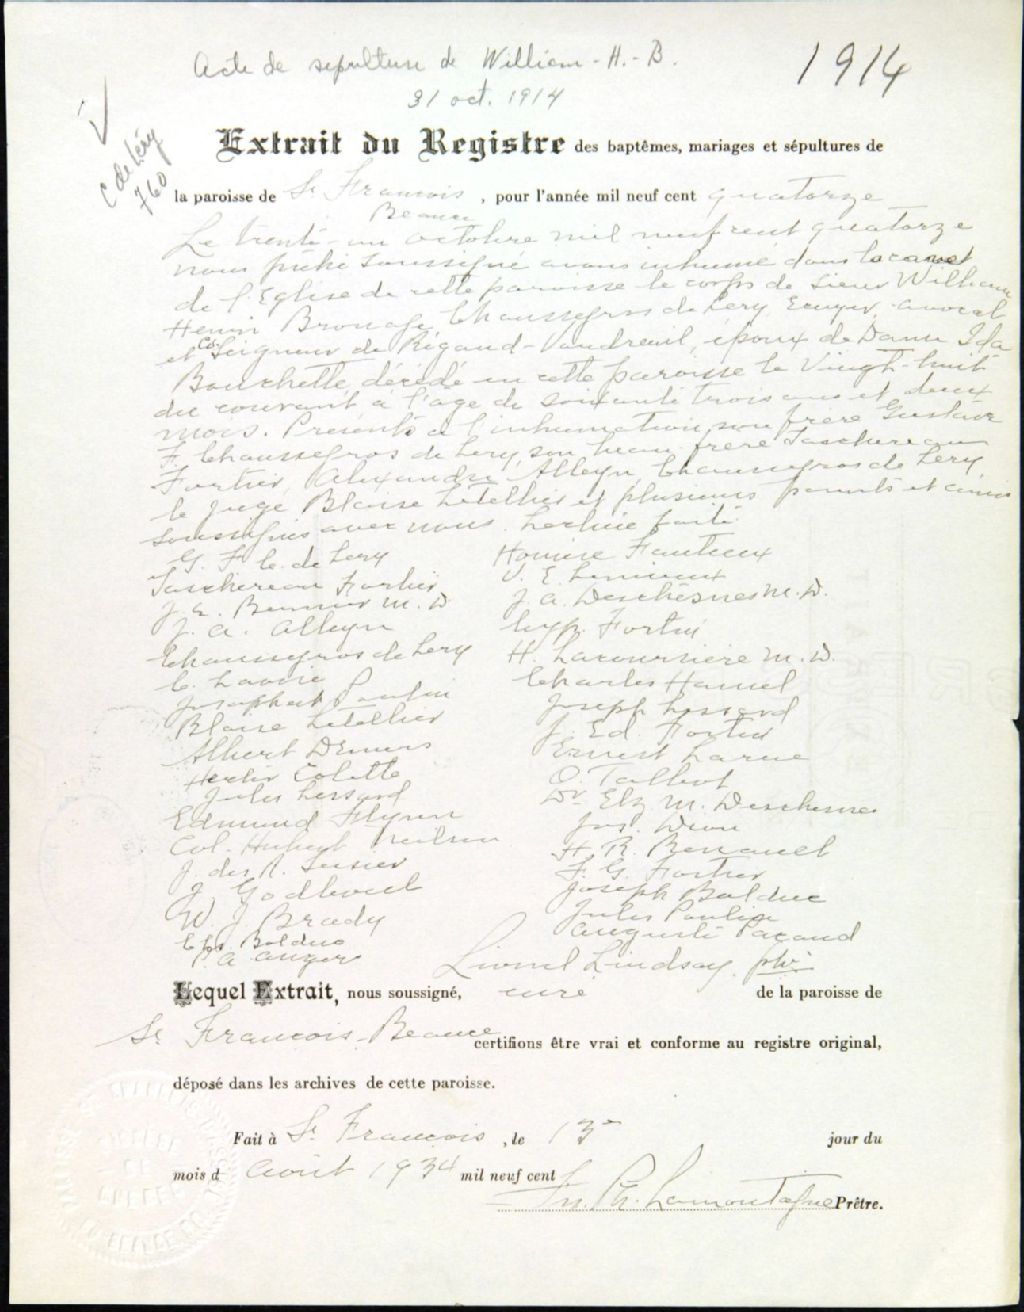 Acte de sepulture de William-H.-B.
31 oct. 1914
1914
C de Léry
760
Extrait du Registre des baptêmes, mariages et sépultures de
la paroisse de St François Beauce, pour l'année mil neuf cent quatorze
Le trente-un octobre mil neuf cent quatorze
nous prêtre soussigné avons inhumé dans la cave
de l'Eglise de cette paroisse le corps de Sieur William
Henri Brouage, Chaussegros de Lery Ecuyer, avocat
et Co Seigneur de Rigaud-Vaudreuil, époux de Dame Ida
Bouchette, décédé en cette paroisse le Vingt-huit
du courant à l'age de soixante trois ans et deux
mois. Présents à l'inhumation, son frère Gustave
F. Chaussegros de Lery, son beau frère Taschereau
Fortier, Alexandre Alleyn Chaussegros de Lery,
le juge Blaise Letellier et plusieurs parents et amis
soussignés avec nous. Lecture faite
G. F. C. de Lery
Taschereau Fortier
J. A. Alleyn
Chaussegros de Lery
Josaphat Poulin
Blaise Letellier
Albert Demers
Jules Lessard
Edmund Flynn
Col. Hubert Neilson
J. Godbout
W. J. Brady
Chs. Bolduc
P. A. Angers
Homère Fauteux
V. E. Lemieux
J. A. Deschêsnes M. D.
Cyp. Fortin
H. Lacoursière M. D.
Charles Hamel
Joseph Lessard
J. Ed. Fortin
Ernest Larue
O. Talbot
Dr Elz M. Deschesnes
Jos. Dion
H. R. Renault
F. G. Fortier
Joseph Bolduc
Jules Poulin
Auguste Pacaud
Lionel Lindsay, ptre
Lequel Extrait, nous soussigné, curé de la paroisse de
St François-Beauce certifions être vrai et conforme au registre original,
déposé dans les archives de cette paroisse.
Fait à St François, le 13 jour du
mois d Août 1934 mil neuf cent
Ph. Lamontagne Prêtre.